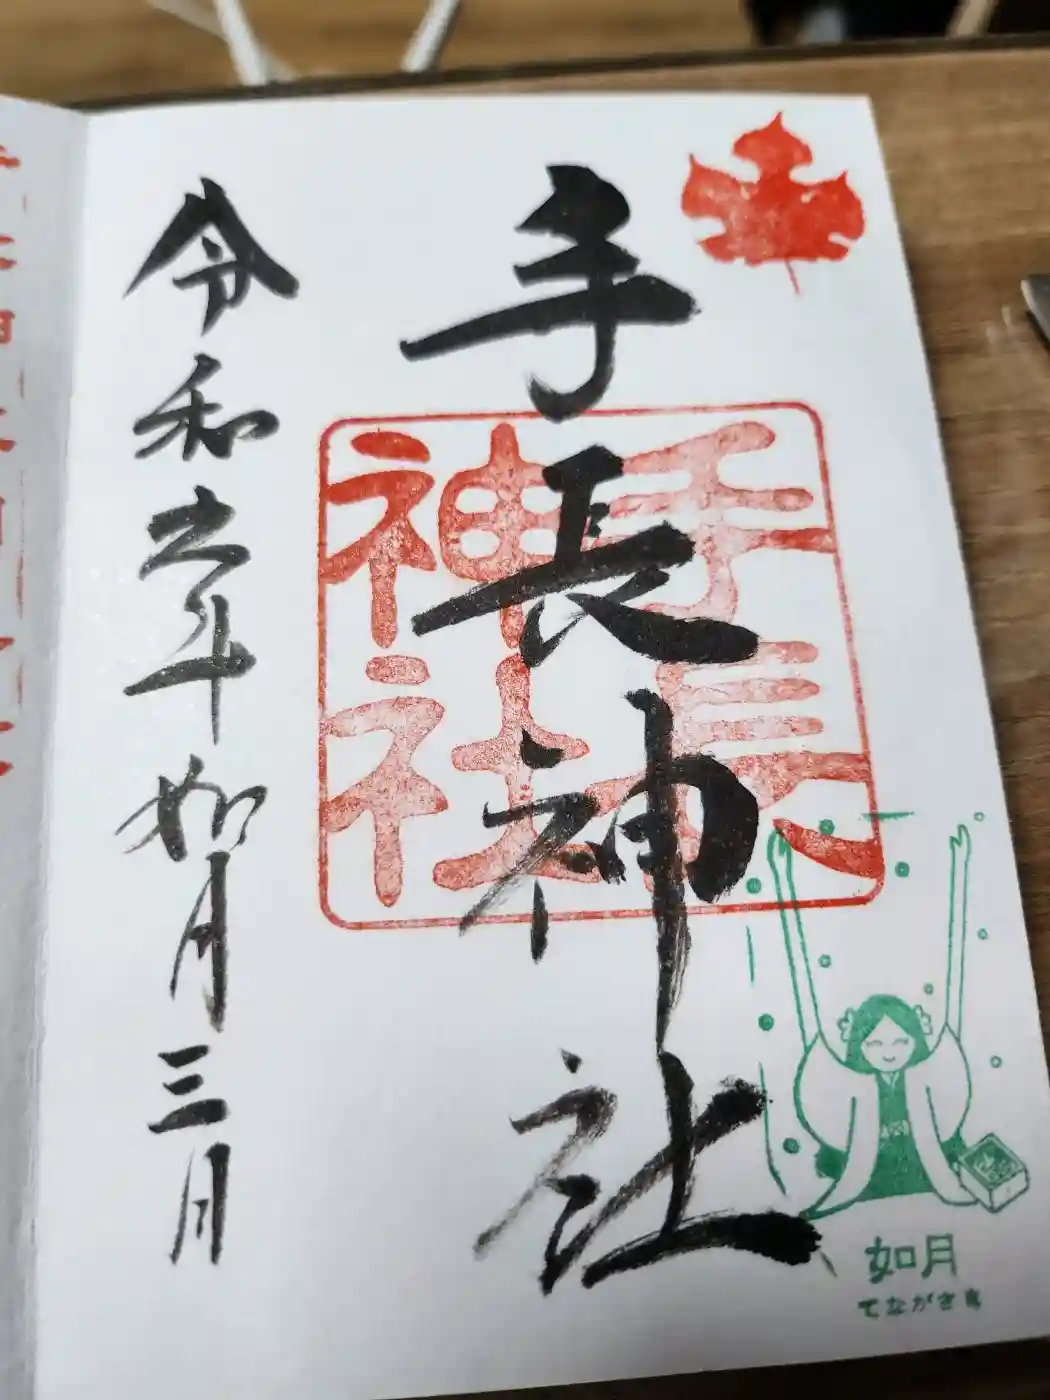 手長神社
手長
神社
令和 年如月三日
如月
てながさま